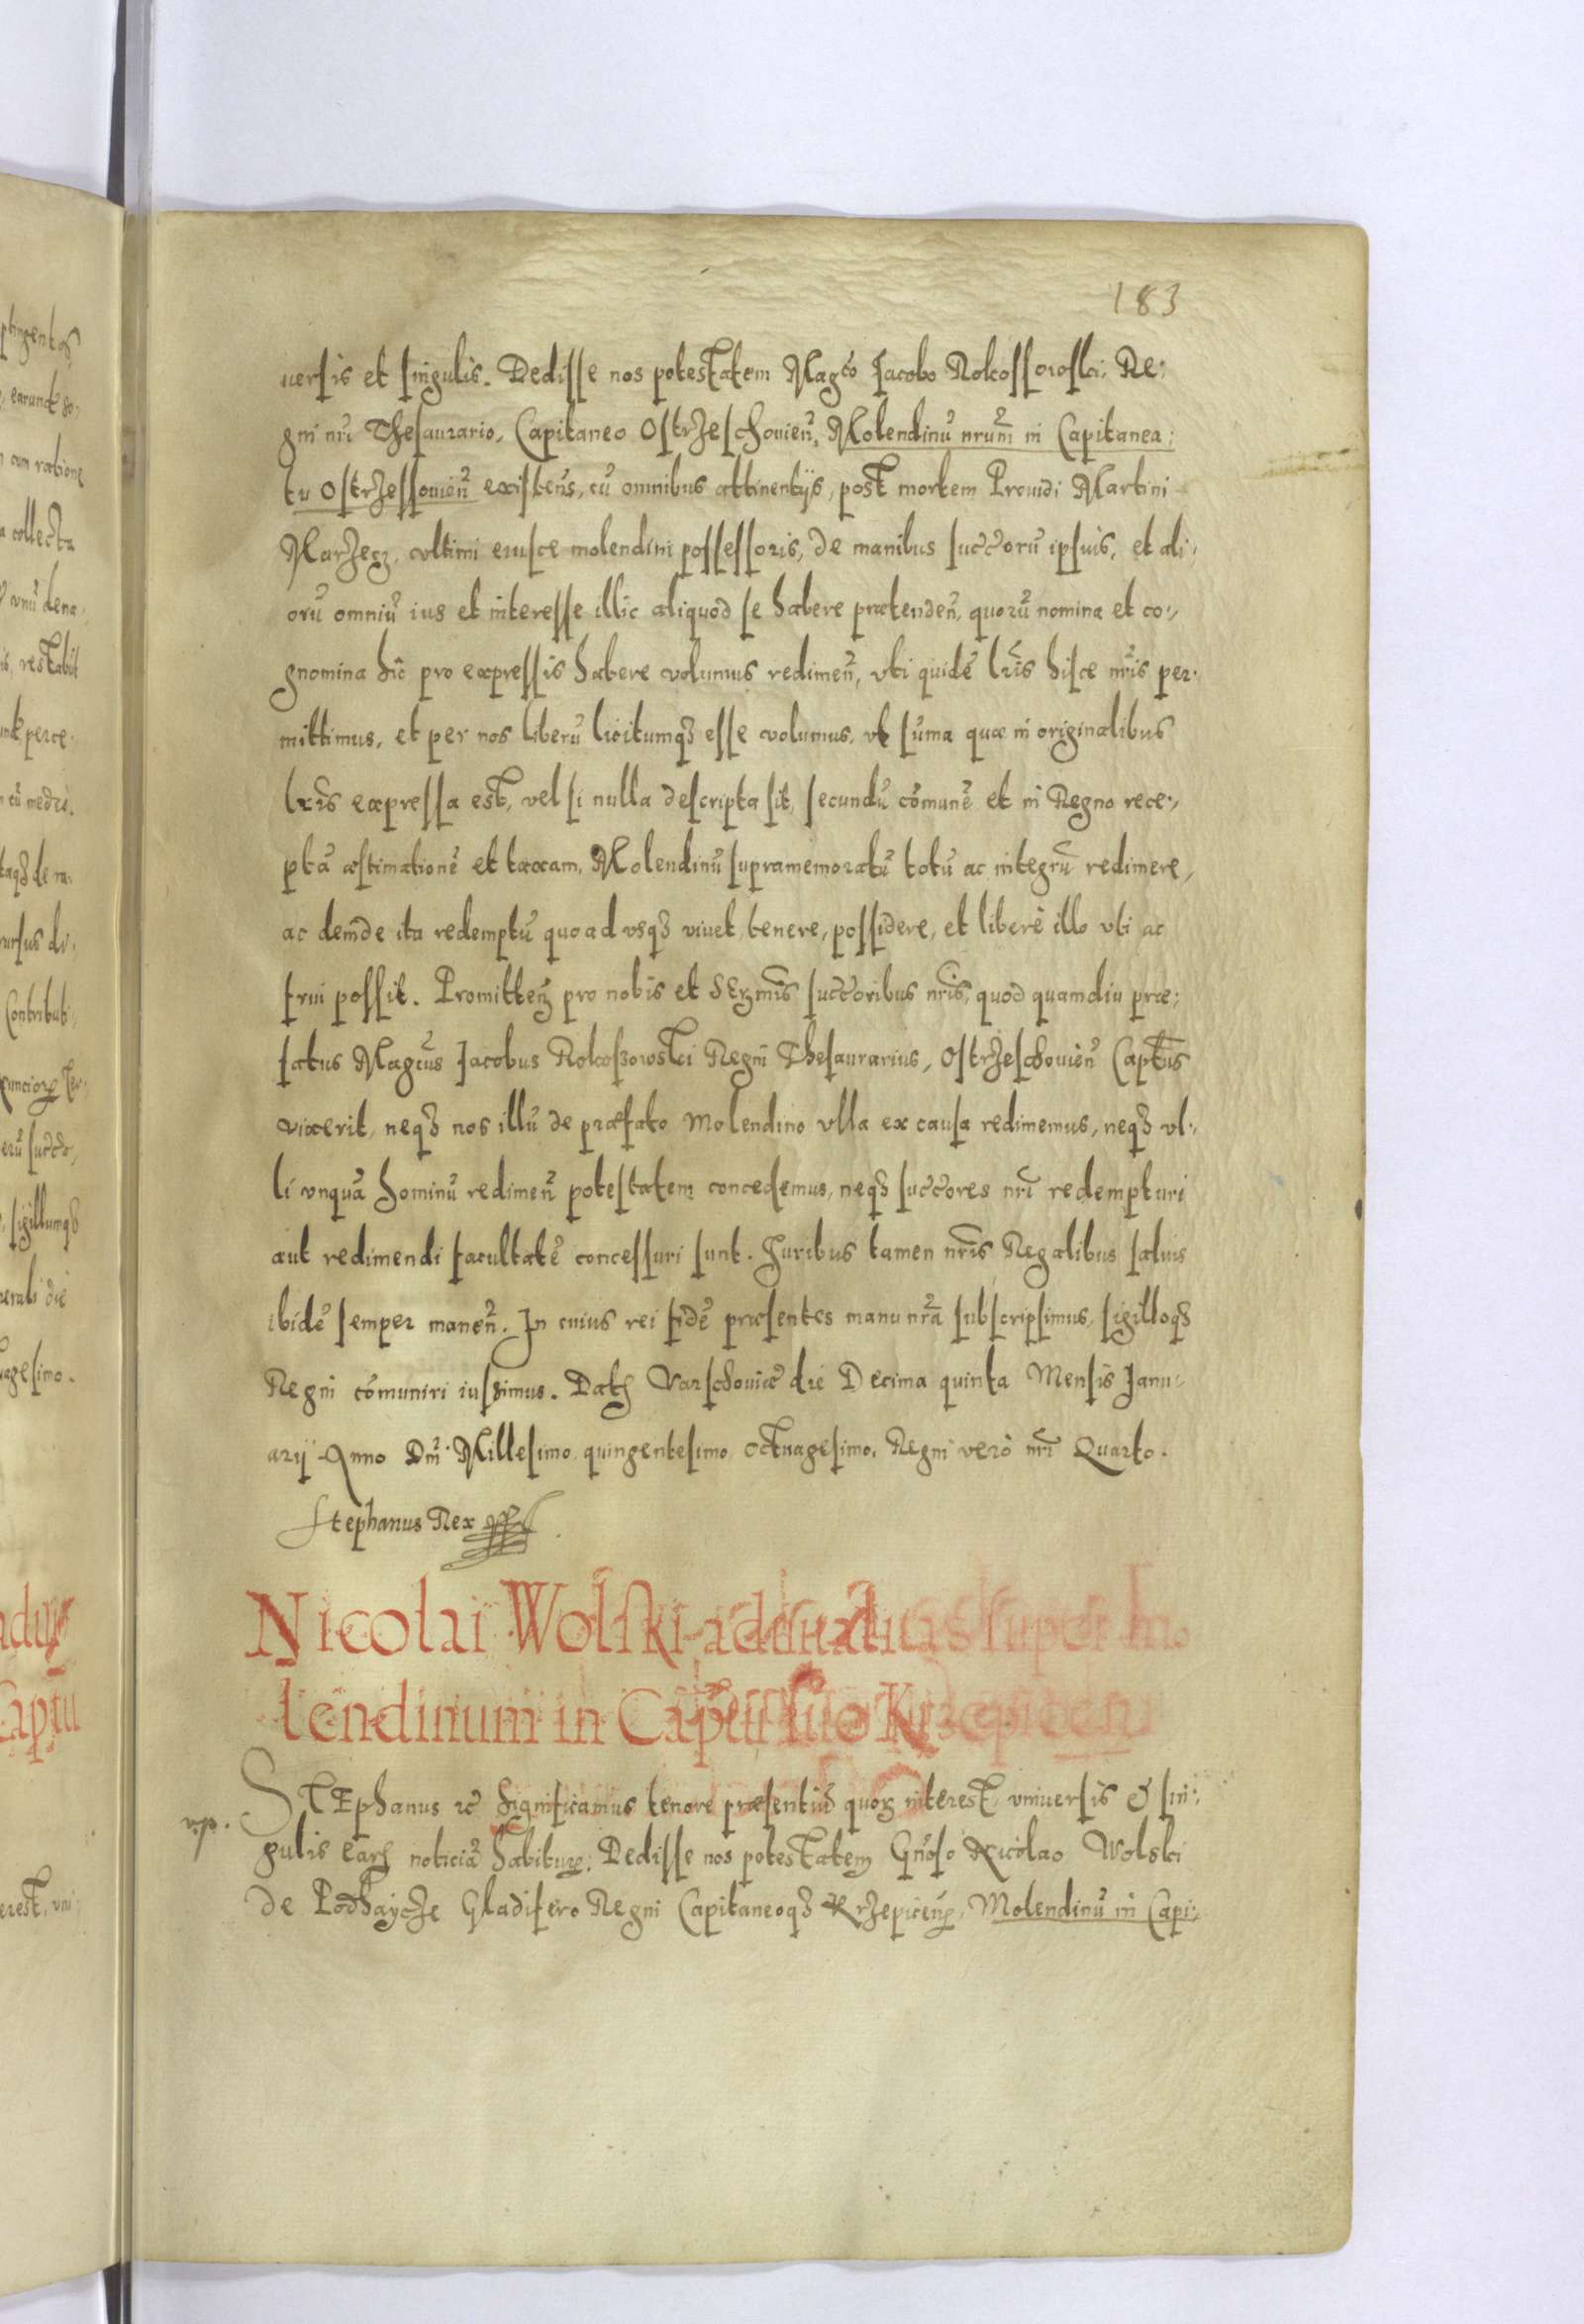 183
uersis et singulis. Dedisse nos potestatem Magco Jacobo Rokossowski, Re:
gni nri Thesaurario, Capitaneo Ostrzeschouien, Molendinū nrum in Capitanea:
tu Ostrzessouien existens, cū omnibus attinentijs, post mortem Prouidi Martini
Marzecz, vltimi eiusce molendini possessoris, de manibus succorū ipsius, et ali:
orū omniū ius et interesse illic aliquod se habere prætenden, quorū nomina et co:
gnomina hic pro expressis habere volumus redimen, vti quidē lris hisce nris per:
mittimus, et per nos liberū licitumq3 esse volumus, vt sūma quæ in originalibus
lris expressa est, vel si nulla descripta sit, secundū cōmunē et in Regno rece:
ptā æstimationē et taxam, Molendinū supramemoratū totū ac integrū redimere,
ac deinde ita redemptū quoad vsq3 viuet, tenere, possidere, et liberè illo vti ac
frui possit. Promitten pro nobis et Serzmis succoribus nris, quod quamdiu præ:
fatus Magcus Jacobus Rokoszowski Regni Thesaurarius, Ostrzeschouien Captus
vixerit, neq3 nos illū de præfato Molendino vlla ex causa redimemus, neq3 vl:
li vnquā hominū redimen potestatem concedemus, neq3 succores nri redempturi
aut redimendi facultatē concessuri sunt. Juribus tamen nris Regalibus saluis
ibidē semper manen. In cuius rei fidē præsentes manu nra subscripsimus, sigilloq3
Regni cōmuniri iussimus. Dat Varschouiæ die Decima quinta Mensis Janu:
arij Anno Dni Millesimo quingentesimo octuagesimo, Regni verò nri Quarto.
Stephanus Rex
Nicolai Wolski aduitalitas super mo
lendinum in Captu suo Krzepicen
v.p.
STEphanus rc Significamus tenore præsentiū quor interest, vniuersis & sin:
gulis ear noticiā habitur: Dedisse nos potestatem Gnoso Nicolao Wolski
de Podhaycze Gladifero Regni Capitaneoq3 Krzepicen, Molendinū in Capi: